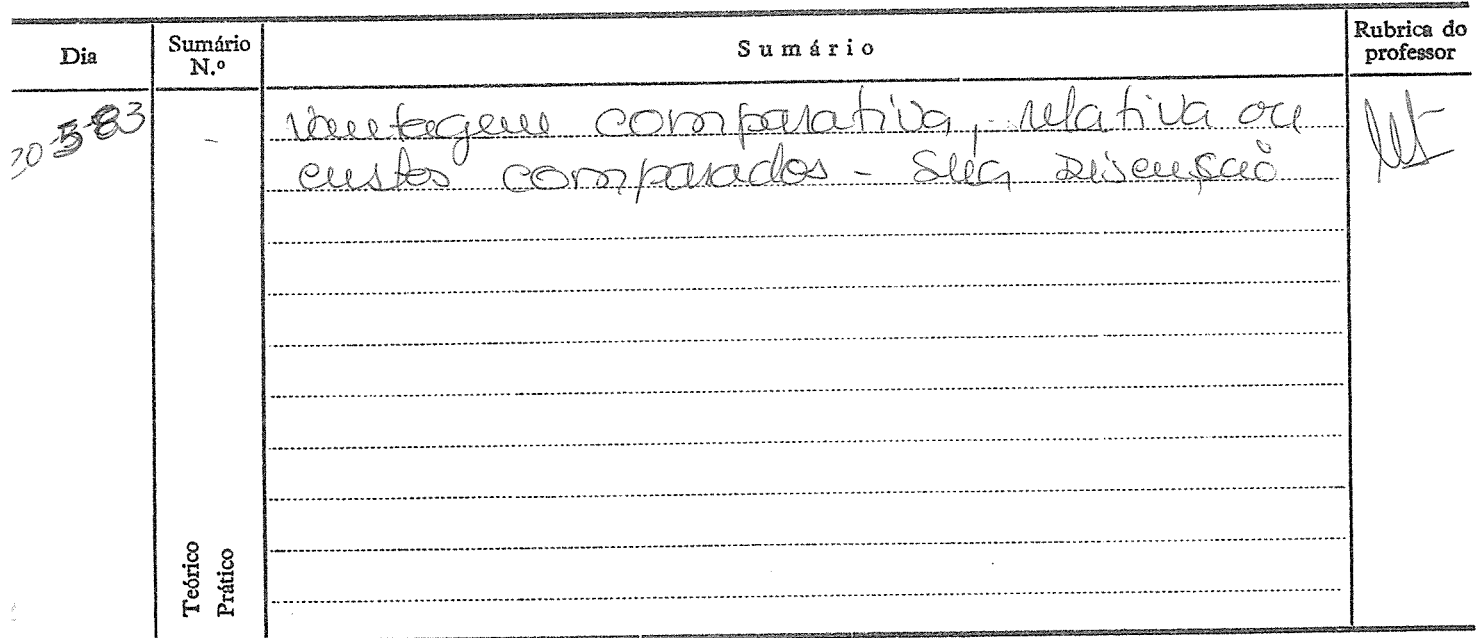 Dia Sumário N.º Sumário Rubrica do professor
20-5-83 - Vantagem comparativa, relativa ou
custos comparados - Sua discussão
Teórico
Prático